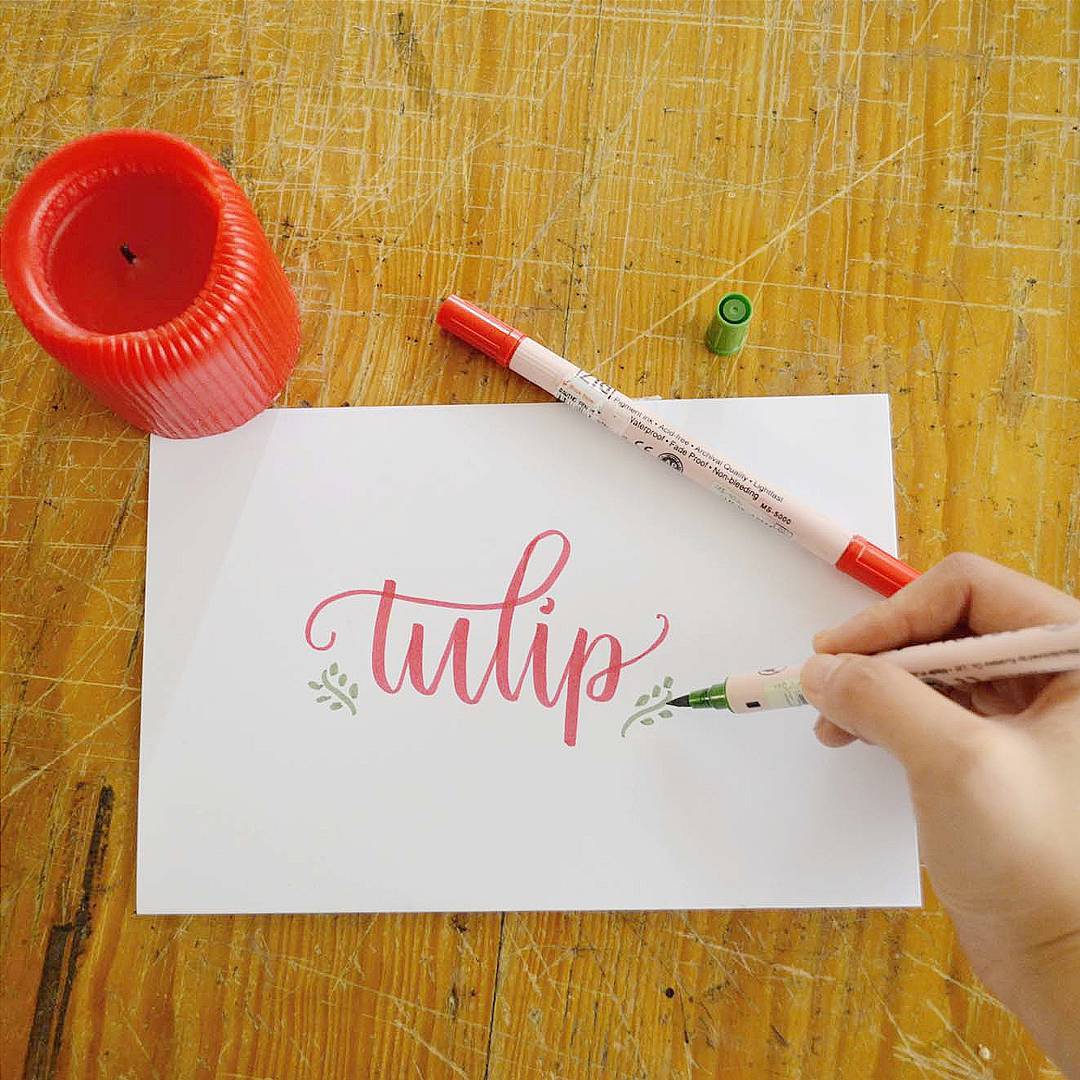 Zig
Pigment Ink • Acid-free • Archival Quality • Lightfast
Waterproof • Fade Proof • Non-bleeding
MS-5000
CE
tulip